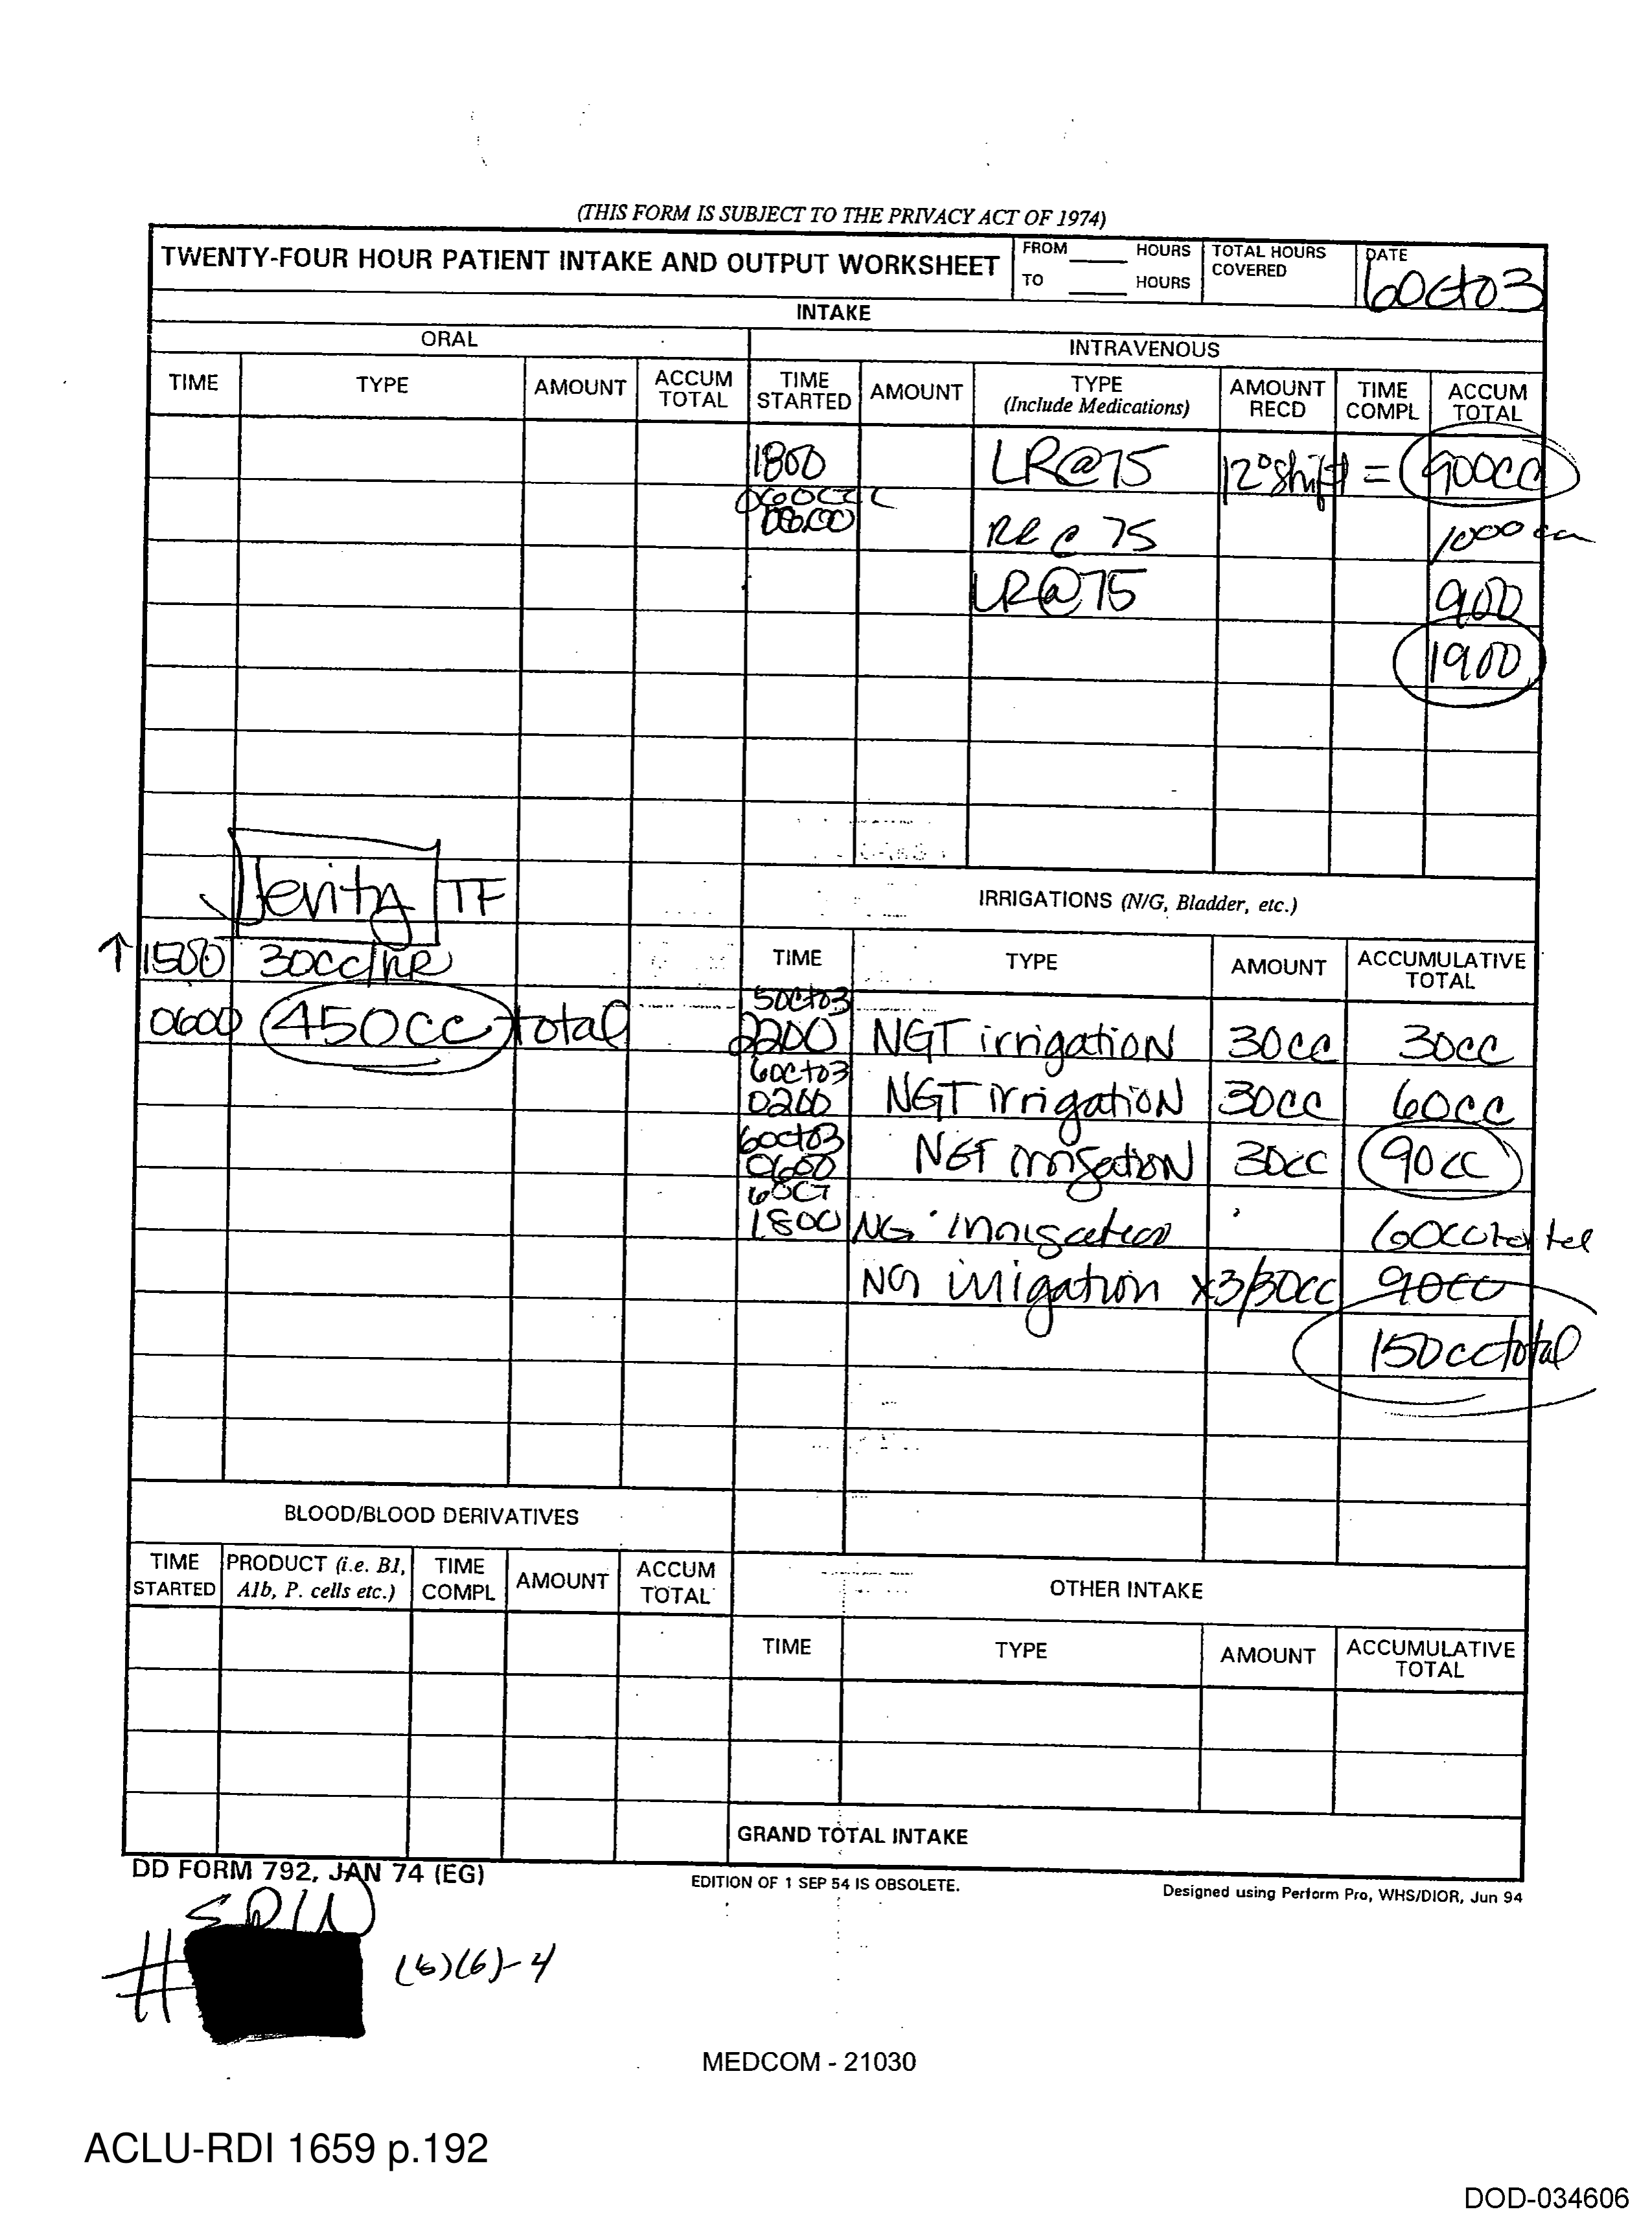 (THIS FORM IS SUBJECT TO THE PRIVACY ACT OF 1974)
TWENTY-FOUR HOUR PATIENT INTAKE AND OUTPUT WORKSHEET
FROM ____ HOURS
TO ____ HOURS
TOTAL HOURS COVERED
DATE
6Oct03
INTAKE
ORAL
INTRAVENOUS
TIME TYPE AMOUNT ACCUM TOTAL TIME STARTED AMOUNT TYPE (Include Medications) AMOUNT RECD TIME COMPL ACCUM TOTAL
1800 LR@75 12° Shift = 900cc
0600
0600 @ 75 1000
LR@75 900
1900
Jevity TF
↑ 1500 30cc/hr
0600 450cc total
IRRIGATIONS (N/G, Bladder, etc.)
TIME TYPE AMOUNT ACCUMULATIVE TOTAL
5Oct03
2200 NGT irrigation 30cc 30cc
6Oct03
0200 NGT irrigation 30cc 60cc
6Oct03
0600 NGT irrigation 30cc 90cc
6Oct
1800 NG irrigation 60cc total
NG irrigation x3/30cc 90cc
150cc total
BLOOD/BLOOD DERIVATIVES
TIME STARTED PRODUCT (i.e. B1, Alb, P. cells etc.) TIME COMPL AMOUNT ACCUM TOTAL
OTHER INTAKE
TIME TYPE AMOUNT ACCUMULATIVE TOTAL
GRAND TOTAL INTAKE
DD FORM 792, JAN 74 (EG)
EDITION OF 1 SEP 54 IS OBSOLETE.
Designed using Perform Pro, WHS/DIOR, Jun 94
#
(b)(6)-4
MEDCOM - 21030
ACLU-RDI 1659 p.192
DOD-034606